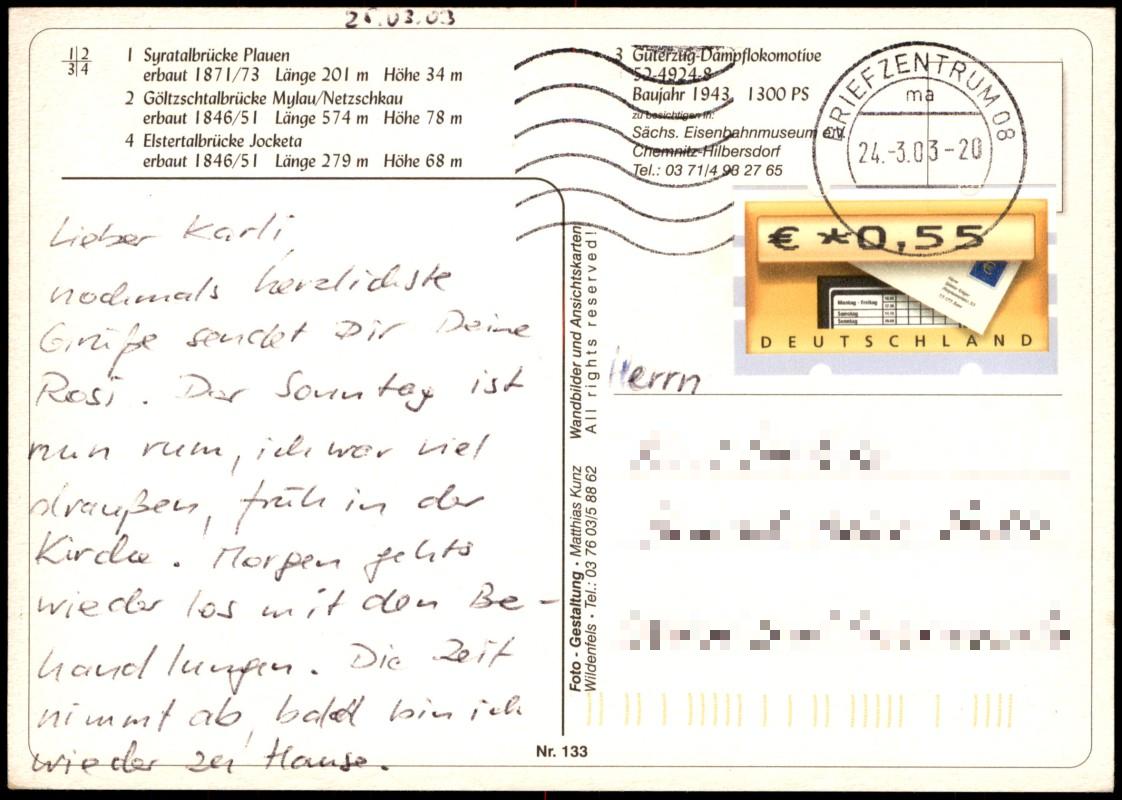 25.03.03
1 2
3 4
1 Syratalbrücke Plauen
erbaut 1871/73 Länge 201 m Höhe 34 m
2 Göltzschtalbrücke Mylau/Netzschkau
erbaut 1846/51 Länge 574 m Höhe 78 m
4 Elstertalbrücke Jocketa
erbaut 1846/51 Länge 279 m Höhe 68 m
3 Güterzug-Dampflokomotive
52-4924-8
Baujahr 1943, 1300 PS
zu besichtigen in:
Sächs. Eisenbahnmuseum
Chemnitz-Hilbersdorf
Tel.: 03 71/4 93 27 65
BRIEFZENTRUM 08
ma
24.-3.03-20
€ *0,55
Montag - Freitag
Samstag
Sonntag
DEUTSCHLAND
Lieber Karli,
nochmals herzlichste
Grüße sendet Dir Deine
Rosi. Der Sonntag ist
nun rum, ich war viel
draußen, früh in der
Kirche. Morgen gehts
wieder los mit den Be-
handlungen. Die Zeit
nimmt ab, bald bin ich
wieder zu Hause.
Wandbilder und Ansichtskarten
All rights reserved!
Foto - Gestaltung · Matthias Kunz
Wildenfels · Tel.: 03 76 03/5 88 62
Herrn
Nr. 133